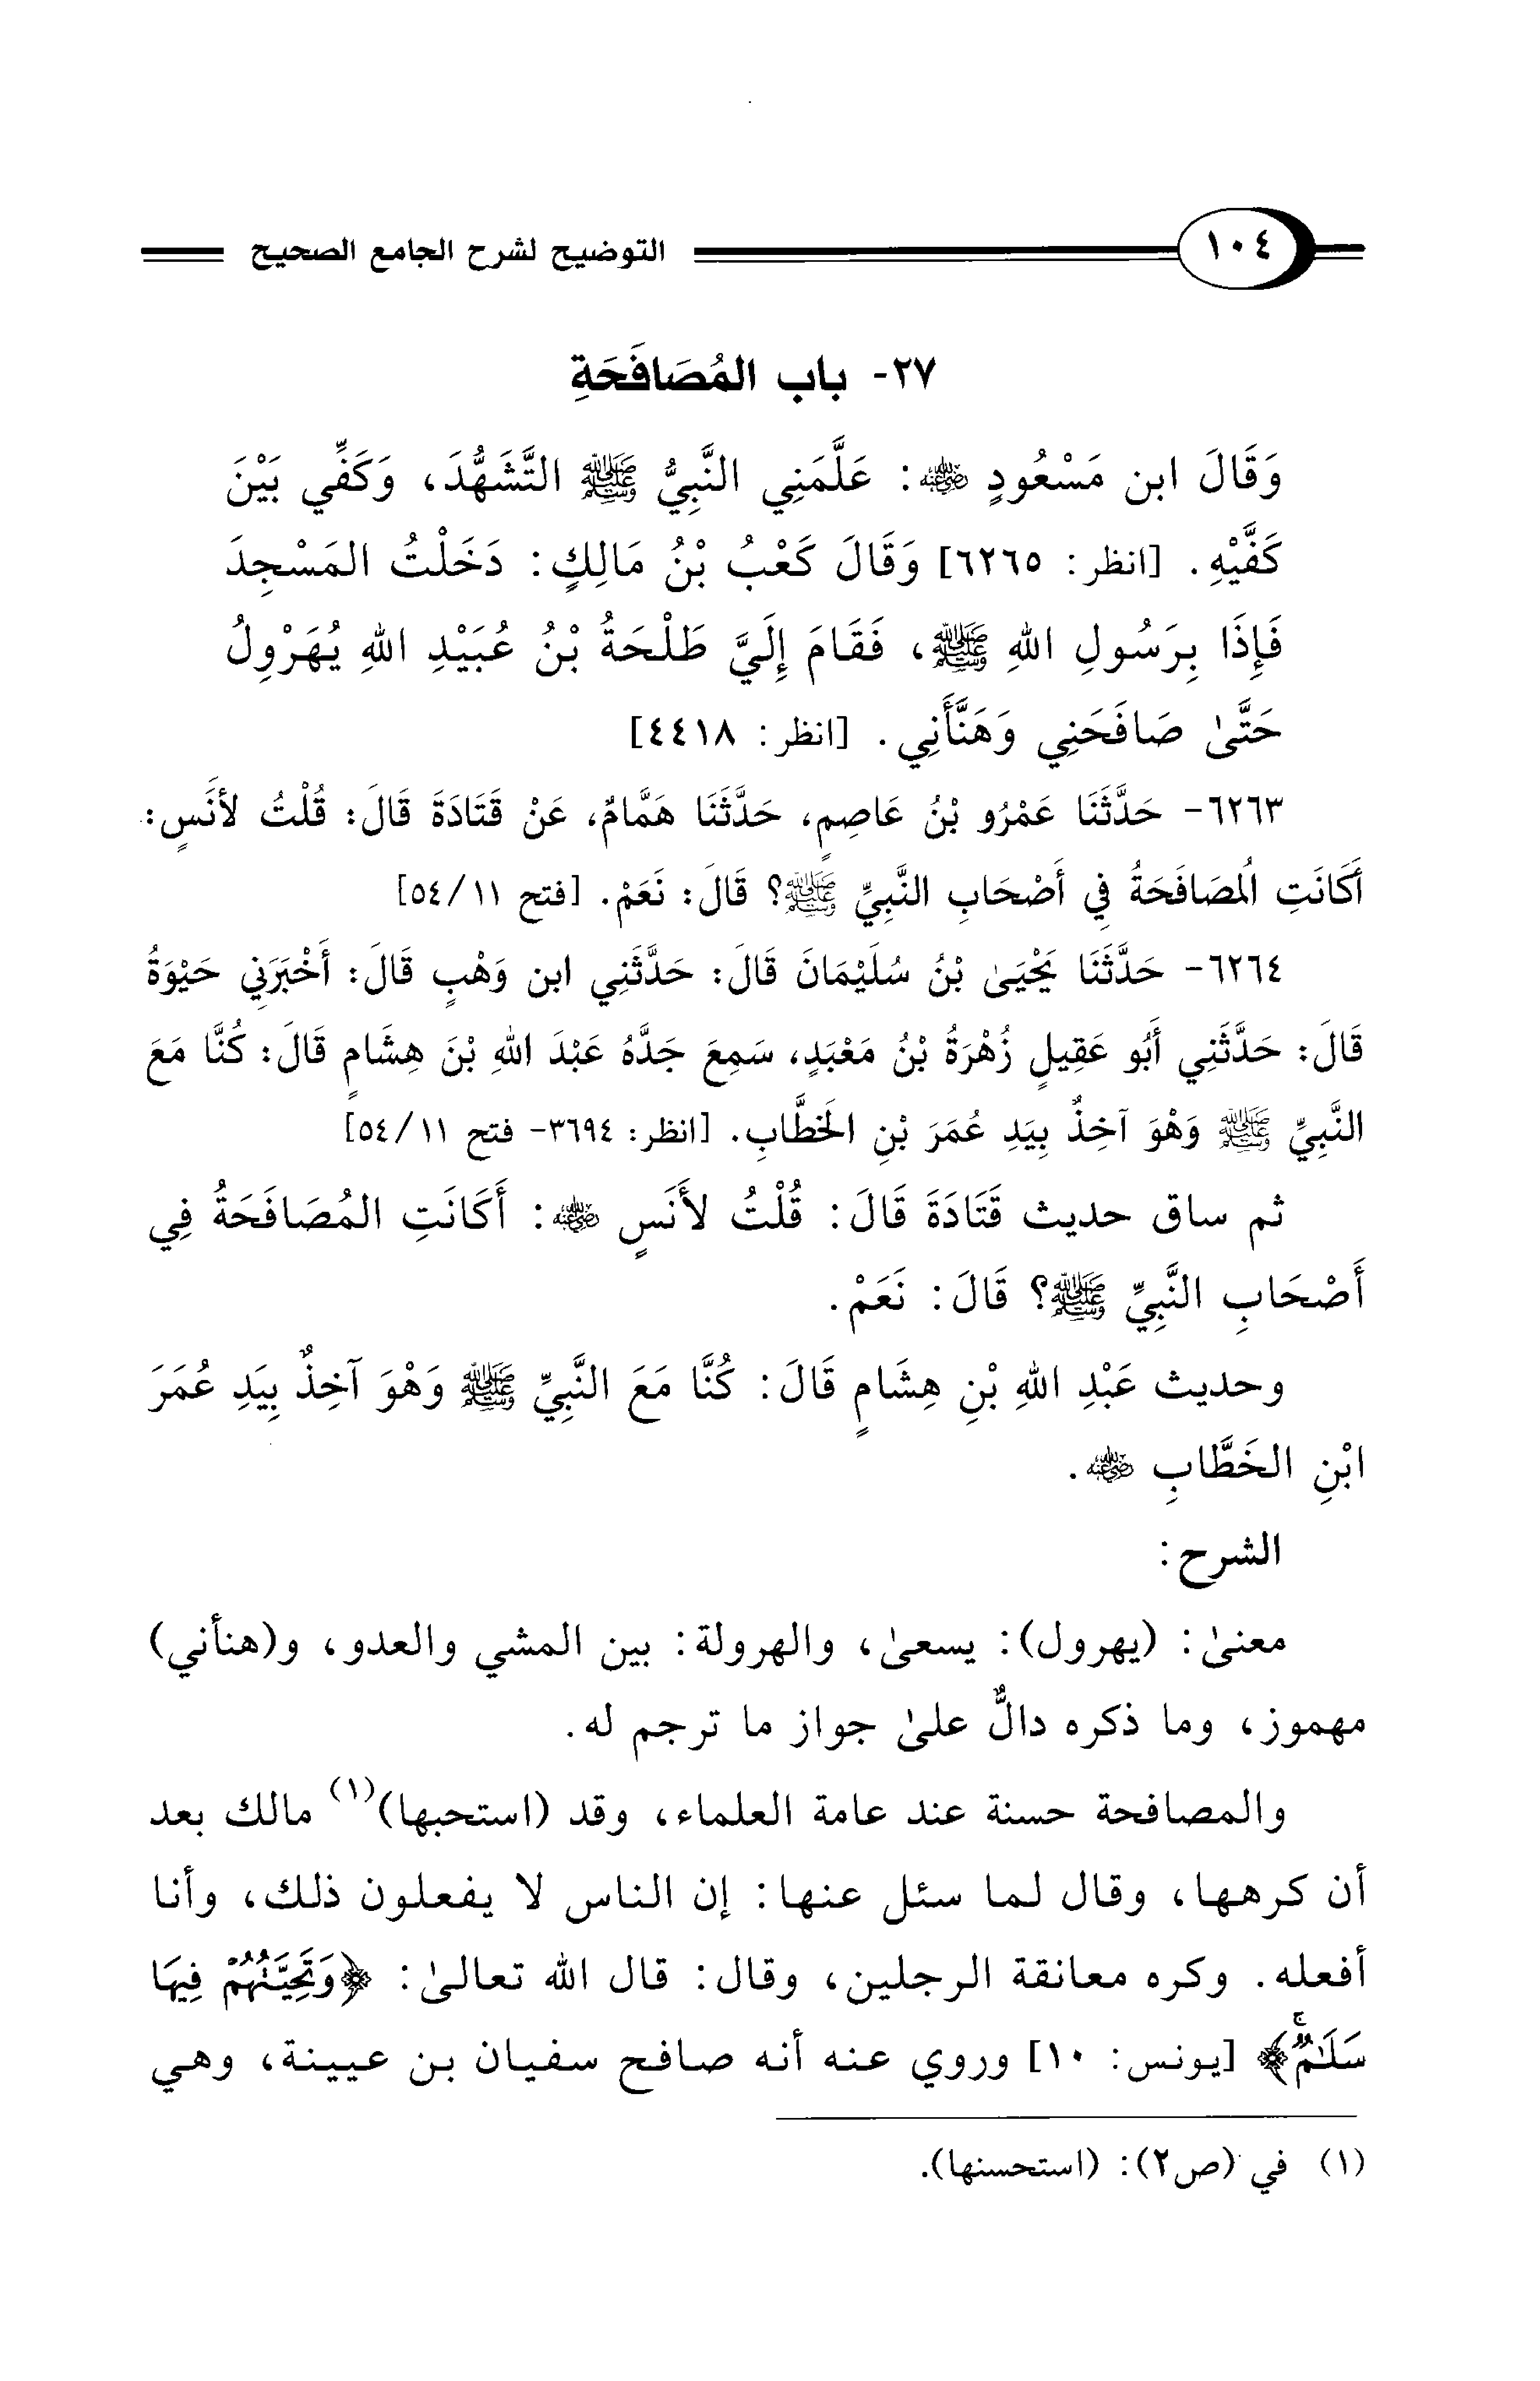 ١٠٤ التوضيح لشرح الجامع الصحيح
٢٧- باب المُصَافَحَةِ
وَقَالَ ابن مَسْعُودٍ ﵁: عَلَّمَنِي النَّبِيُّ ﷺ التَّشَهُّدَ، وَكَفِّي بَيْنَ
كَفَّيْهِ. [انظر: ٦٢٦٥] وَقَالَ كَعْبُ بْنُ مَالِكٍ: دَخَلْتُ المَسْجِدَ
فَإِذَا بِرَسُولِ اللهِ ﷺ، فَقَامَ إِلَيَّ طَلْحَةُ بْنُ عُبَيْدِ اللهِ يُهَرْوِلُ
حَتَّىٰ صَافَحَنِي وَهَنَّأَنِي. [انظر: ٤٤١٨]
٦٢٦٣- حَدَّثَنَا عَمْرُو بْنُ عَاصِمٍ، حَدَّثَنَا هَمَّامٌ، عَنْ قَتَادَةَ قَالَ: قُلْتُ لأَنَسٍ:
أَكَانَتِ المُصَافَحَةُ فِي أَصْحَابِ النَّبِيِّ ﷺ؟ قَالَ: نَعَمْ. [فتح ١١/٥٤]
٦٢٦٤- حَدَّثَنَا يَحْيَىٰ بْنُ سُلَيْمَانَ قَالَ: حَدَّثَنِي ابن وَهْبٍ قَالَ: أَخْبَرَنِي حَيْوَةُ
قَالَ: حَدَّثَنِي أَبُو عَقِيلٍ زُهْرَةُ بْنُ مَعْبَدٍ، سَمِعَ جَدَّهُ عَبْدَ اللهِ بْنَ هِشَامٍ قَالَ: كُنَّا مَعَ
النَّبِيِّ ﷺ وَهْوَ آخِذٌ بِيَدِ عُمَرَ بْنِ الخَطَّابِ. [انظر: ٣٦٩٤- فتح ١١/٥٤]
ثم ساق حديث قَتَادَةَ قَالَ: قُلْتُ لأَنَسٍ ﵁: أَكَانَتِ المُصَافَحَةُ فِي
أَصْحَابِ النَّبِيِّ ﷺ؟ قَالَ: نَعَمْ.
وحديث عَبْدِ اللهِ بْنِ هِشَامٍ قَالَ: كُنَّا مَعَ النَّبِيِّ ﷺ وَهْوَ آخِذٌ بِيَدِ عُمَرَ
ابْنِ الخَطَّابِ ﵁.
الشرح:
معنىٰ: (يهرول): يسعىٰ، والهرولة: بين المشي والعدو، و(هنأني)
مهموز، وما ذكره دالٌّ علىٰ جواز ما ترجم له.
والمصافحة حسنة عند عامة العلماء، وقد (استحبها)(١) مالك بعد
أن كرهها، وقال لما سئل عنها: إن الناس لا يفعلون ذلك، وأنا
أفعله. وكره معانقة الرجلين، وقال: قال الله تعالىٰ: ﴿وَتَحِيَّتُهُمْ فِيهَا
سَلَٰمٌ﴾ [يونس: ١٠] وروي عنه أنه صافح سفيان بن عيينة، وهي
(١) في (ص٢): (استحسنها).